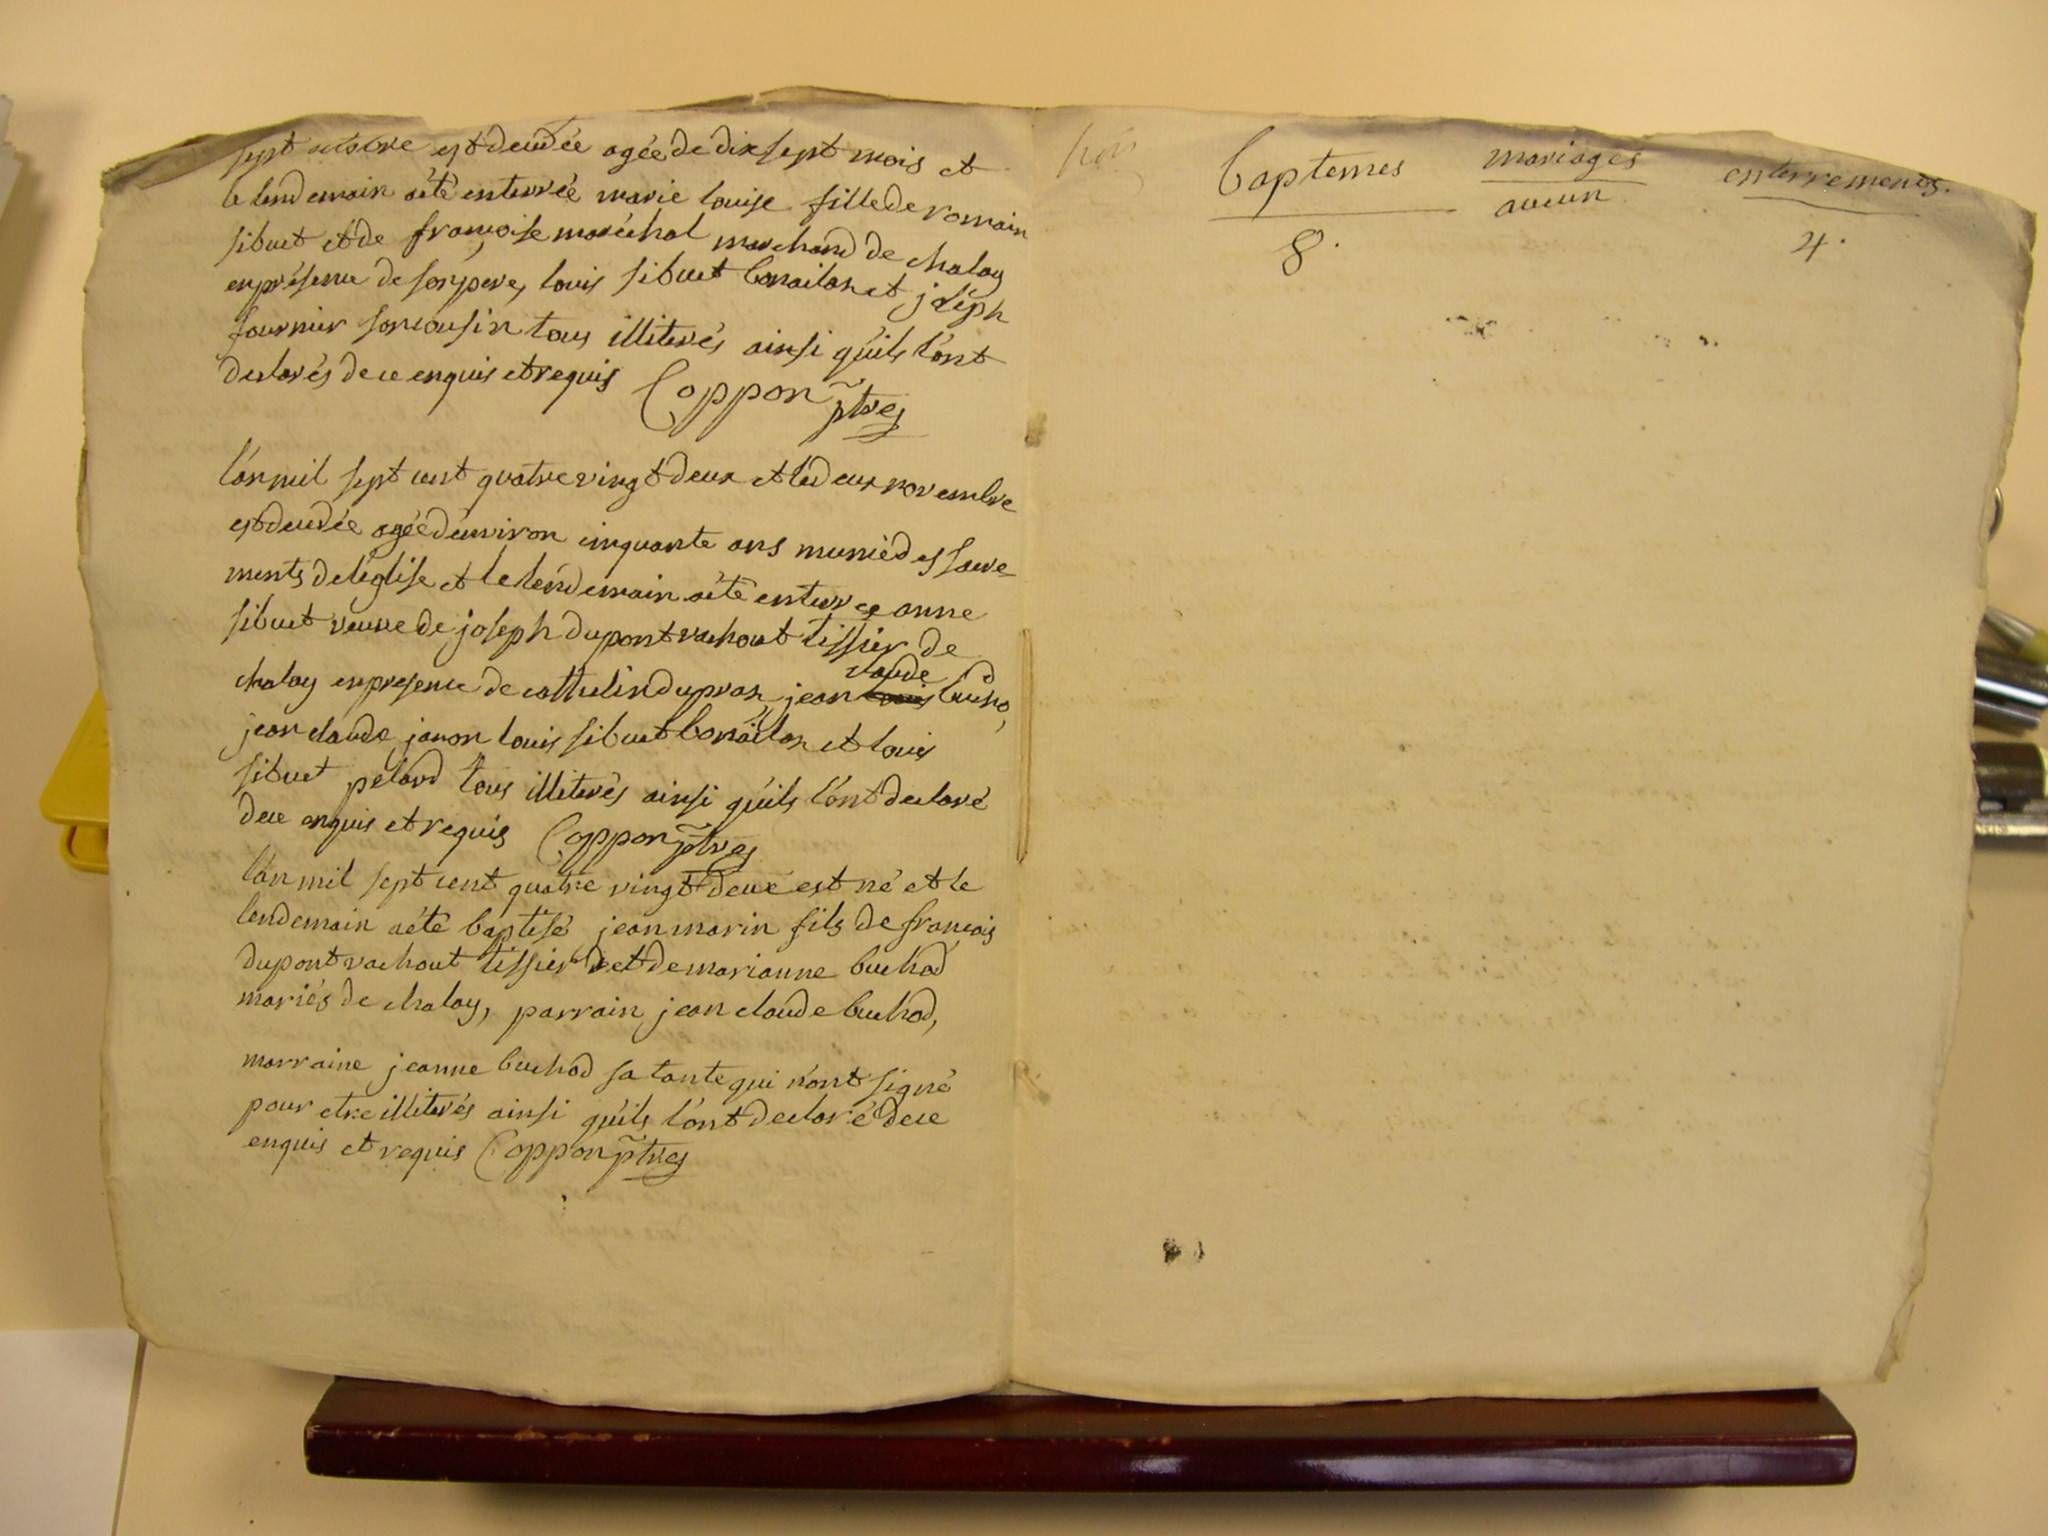 sept octobre est deudée agée de dix sept mois et
le lendemain aété enterrée marie louise fille de romain
sibuet et de françoise maréchal marchand de chaley
en présence de son pere, louis sibuet bonailan et joseph
fournier son cousin tous illiterés ainsi qu'ils l'ont
declarés de ce enquis et requis Coppon ptre
l'an mil sept cent quatre vingt deux et le deux novembre
est deudée agée d'environ cinquante ans munie des sacre=
ments de l'église et le lendemain aété enterrée anne
sibuet veuve de joseph dupont vachout tissier de
claude
chaley en presence de cathelin dupraz, jean louis buchod,
jean claude janon louis sibuet bonailan et louis
sibuet pelard tous illiterés ainsi qu'ils l'ont declaré
de ce enquis et requis Coppon ptre
l'an mil sept cent quatre vingt deux est né et le
lendemain aété baptisé jean marin fils de françois
dupont vachout tissier et de marianne buchod
mariés de chaley, parrain jean claude buchod,
marraine jeanne buchod sa tante qui n'ont signé
pour etre illiterés ainsi qu'ils l'ont declaré de ce
enquis et requis Coppon ptre
baptemes mariages enterrements.
aucun
8. 4.